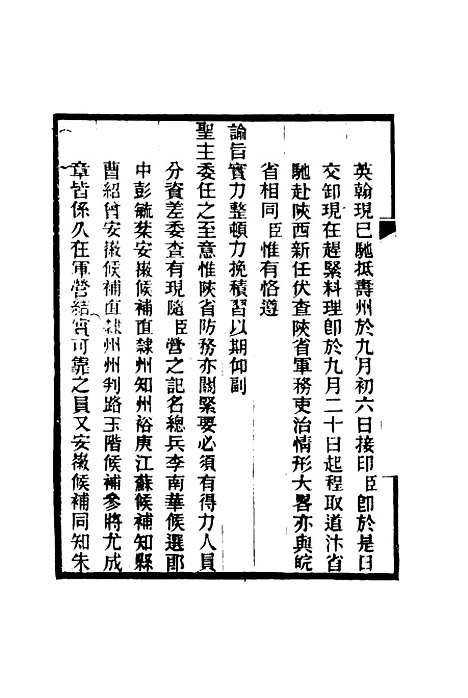 英翰現已馳抵壽州於九月初六日接印臣卽於是日
交卸現在趕緊料理卽於九月二十日起程取道汴省
馳赴陝西新任伏查陝省軍務吏治情形大畧亦與皖
省相同臣惟有恪遵
諭旨實力整頓力挽積習以期仰副
聖主委任之至意惟陝省防務亦關緊要必須有得力人員
分資差委查有現隨臣營之記名總兵李南華候選郎
中彭毓棻安徽候補直隸州知州裕庚江蘇候補知縣
曹紹曾安徽候補直隸州州判路玉階候補參將尤成
章皆係久在軍營結實可靠之員又安徽候補同知朱